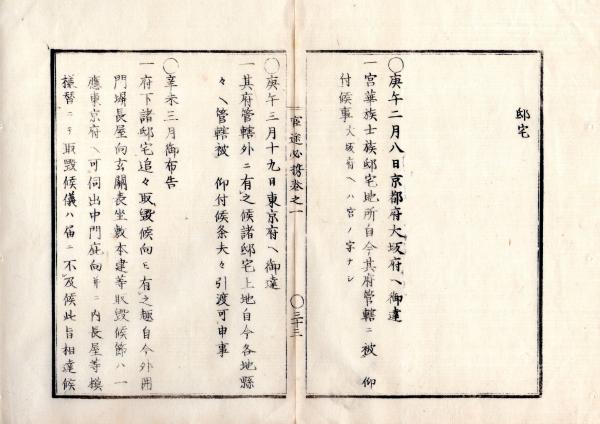 邸宅
◯庚午二月八日京都府大坂府ヘ御達
一宮華族士族邸宅地所自今其府管轄ニ被　仰
付候事大坂府ヘハ宮ノ字ナシ
官途必携卷之一
◯三十三
◯庚午三月十九日東京府ヘ御達
一其府管轄外ニ有之候諸邸宅上地自今各地縣
々ヘ管轄被　仰付候条夫々引渡可申事
◯辛未三月御布告
一府下諸邸宅追々取毀候向モ有之趣自今外囲
門塀長屋向玄關表坐敷本建等取毀候節ハ一
應東京府ヘ可伺出中門庇向并ニ内長屋等模
樣替ニテ取毀候儀ハ届ニ不及候此旨相達候